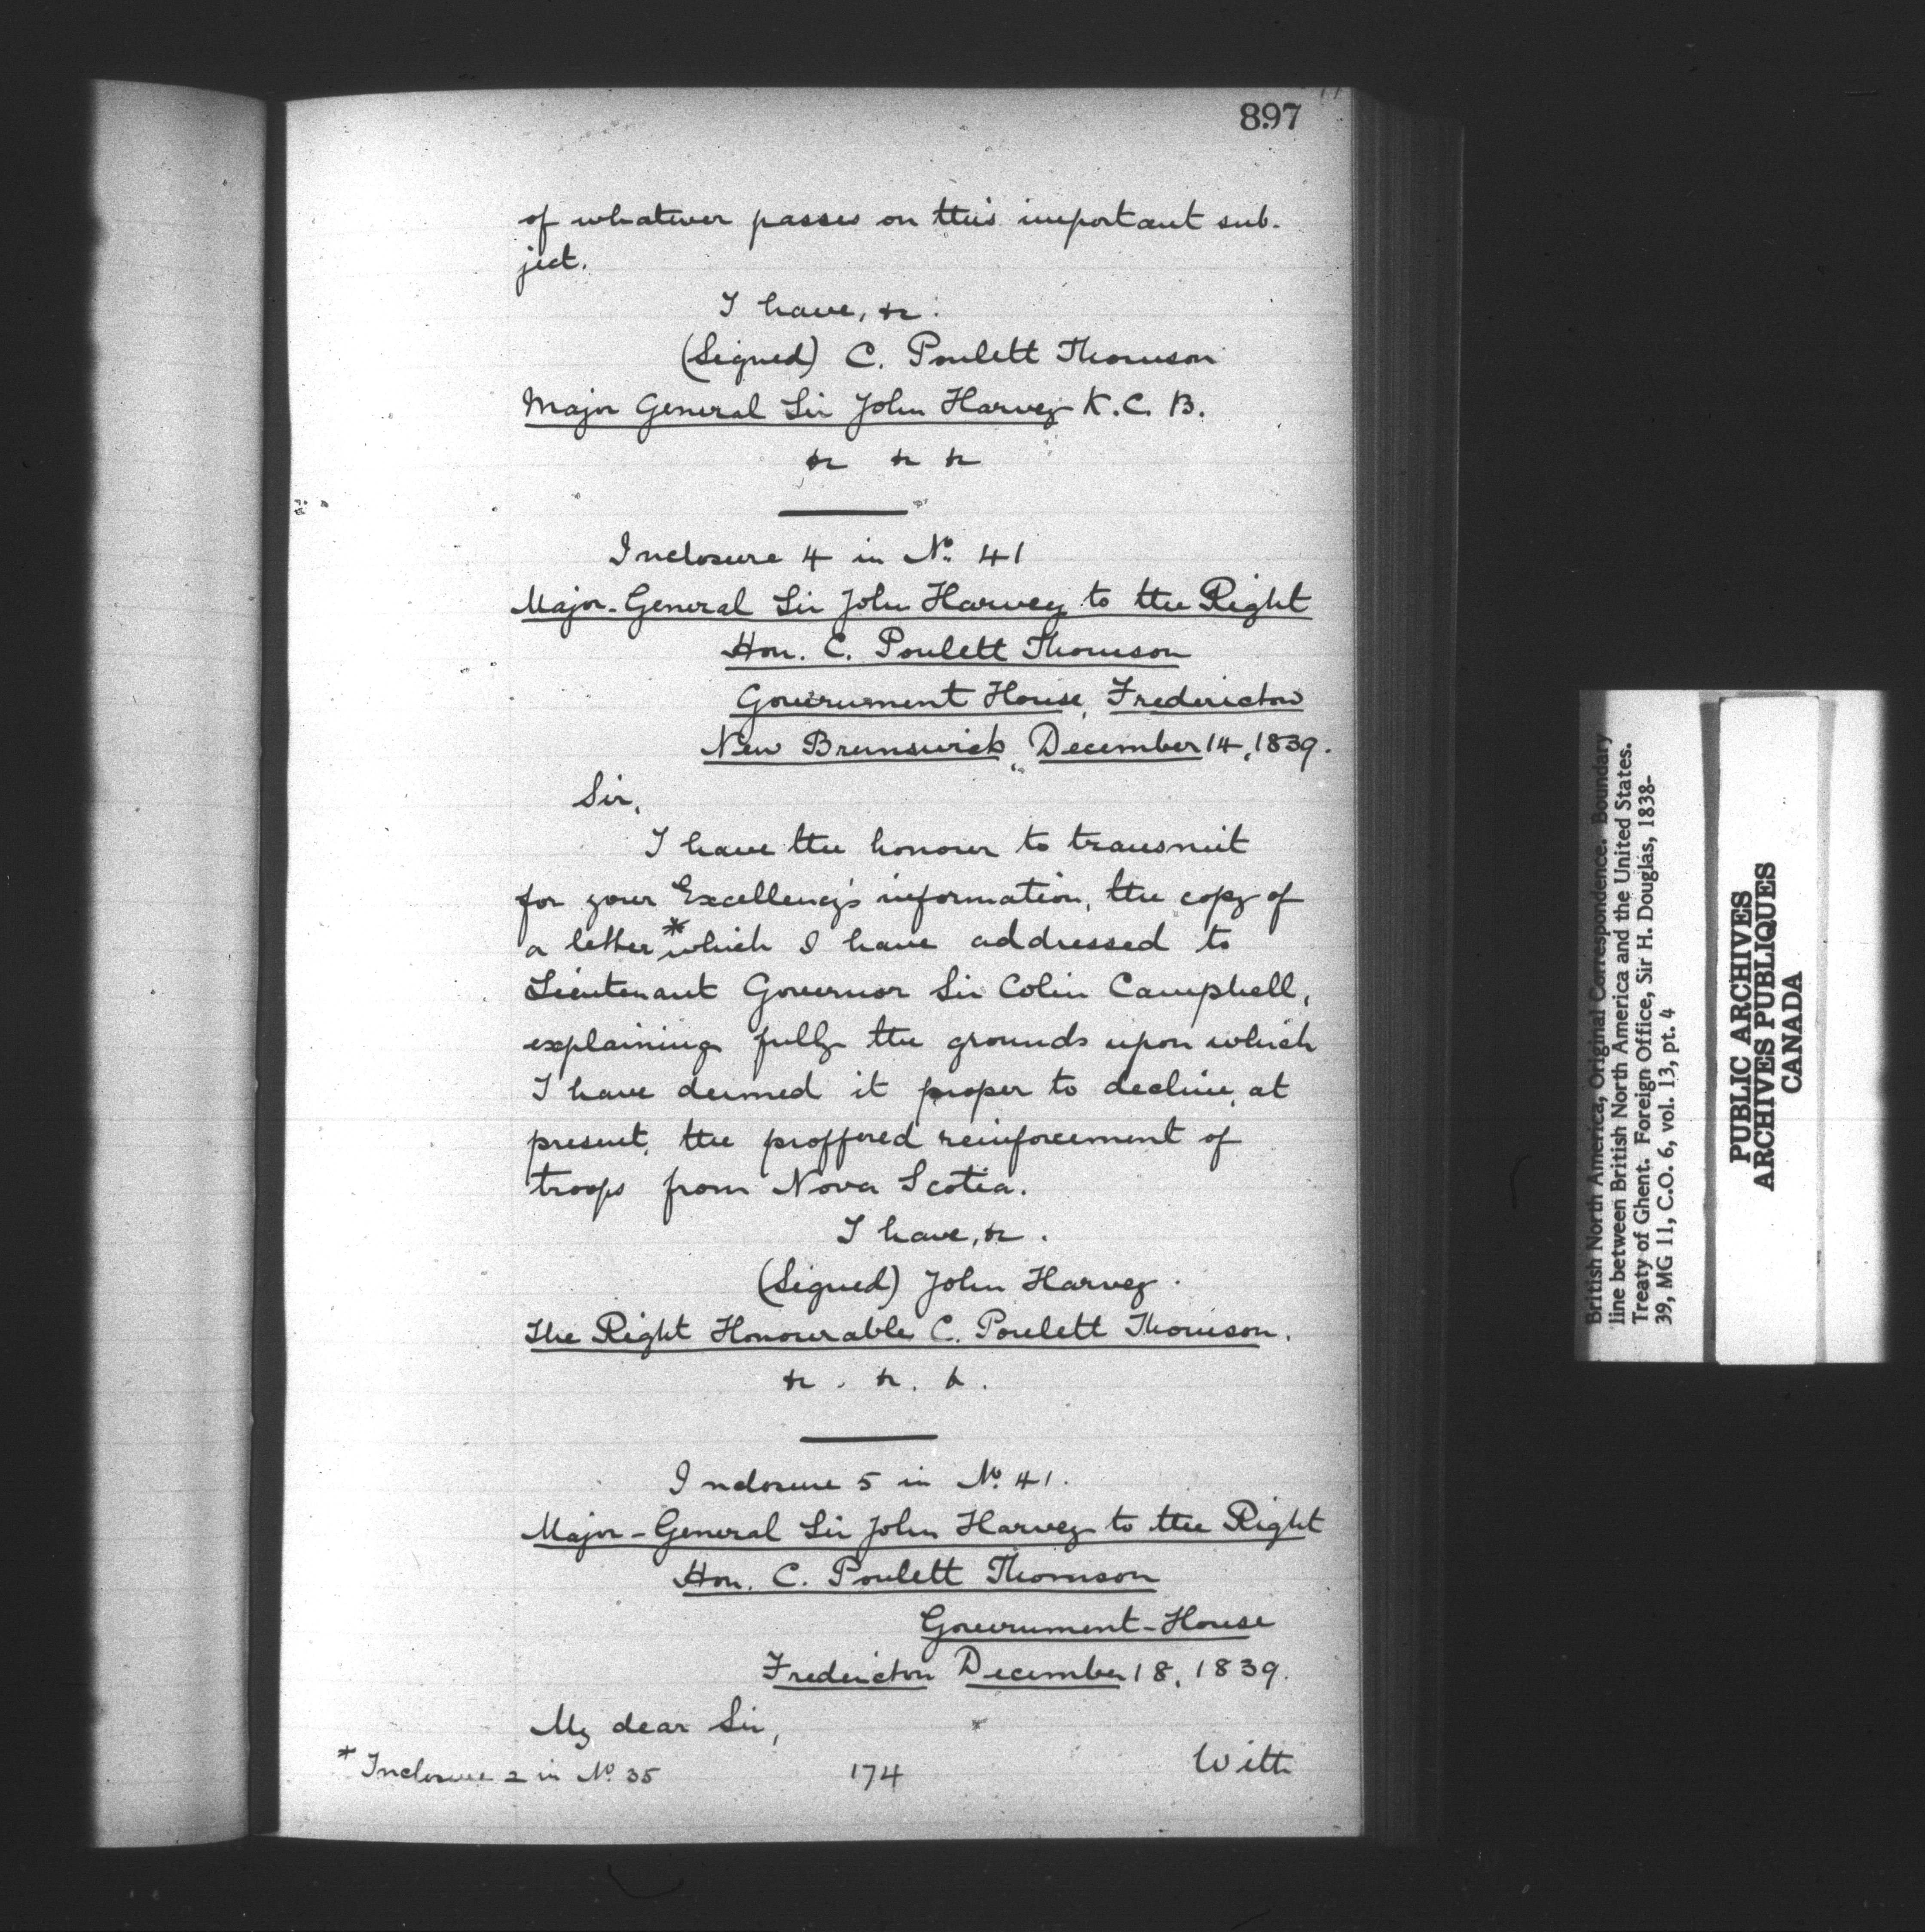 897
of whatever passes on this important sub-
ject.
I have, &c.
(Signed) C. Poulett Thomson
Major General Sir John Harvey K.C.B.
&c &c &c
Inclosure 4 in No. 41
Major-General Sir John Harvey to the Right
Hon. C. Poulett Thomson
Government House, Fredericton
New Brunswick, December 14, 1839.
Sir,
I have the honour to transmit
for your Excellency's information, the copy of
a letter * which I have addressed to
Lieutenant Governor Sir Colin Campbell,
explaining fully the grounds upon which
I have deemed it proper to decline, at
present, the proffered reinforcement of
troops from Nova Scotia.
I have, &c.
(Signed) John Harvey.
The Right Honourable C. Poulett Thomson.
&c. &c. &.
Inclosure 5 in No. 41.
Major-General Sir John Harvey to the Right
Hon. C. Poulett Thomson
Government-House
Fredericton December 18, 1839.
My dear Sir,
With
* Inclosure 2 in No 35
174
British North America, Original Correspondence. Boundary
line between British North America and the United States.
Treaty of Ghent. Foreign Office, Sir H. Douglas, 1838-
39, MG 11, C.O. 6, vol. 13, pt. 4
PUBLIC ARCHIVES
ARCHIVES PUBLIQUES
CANADA